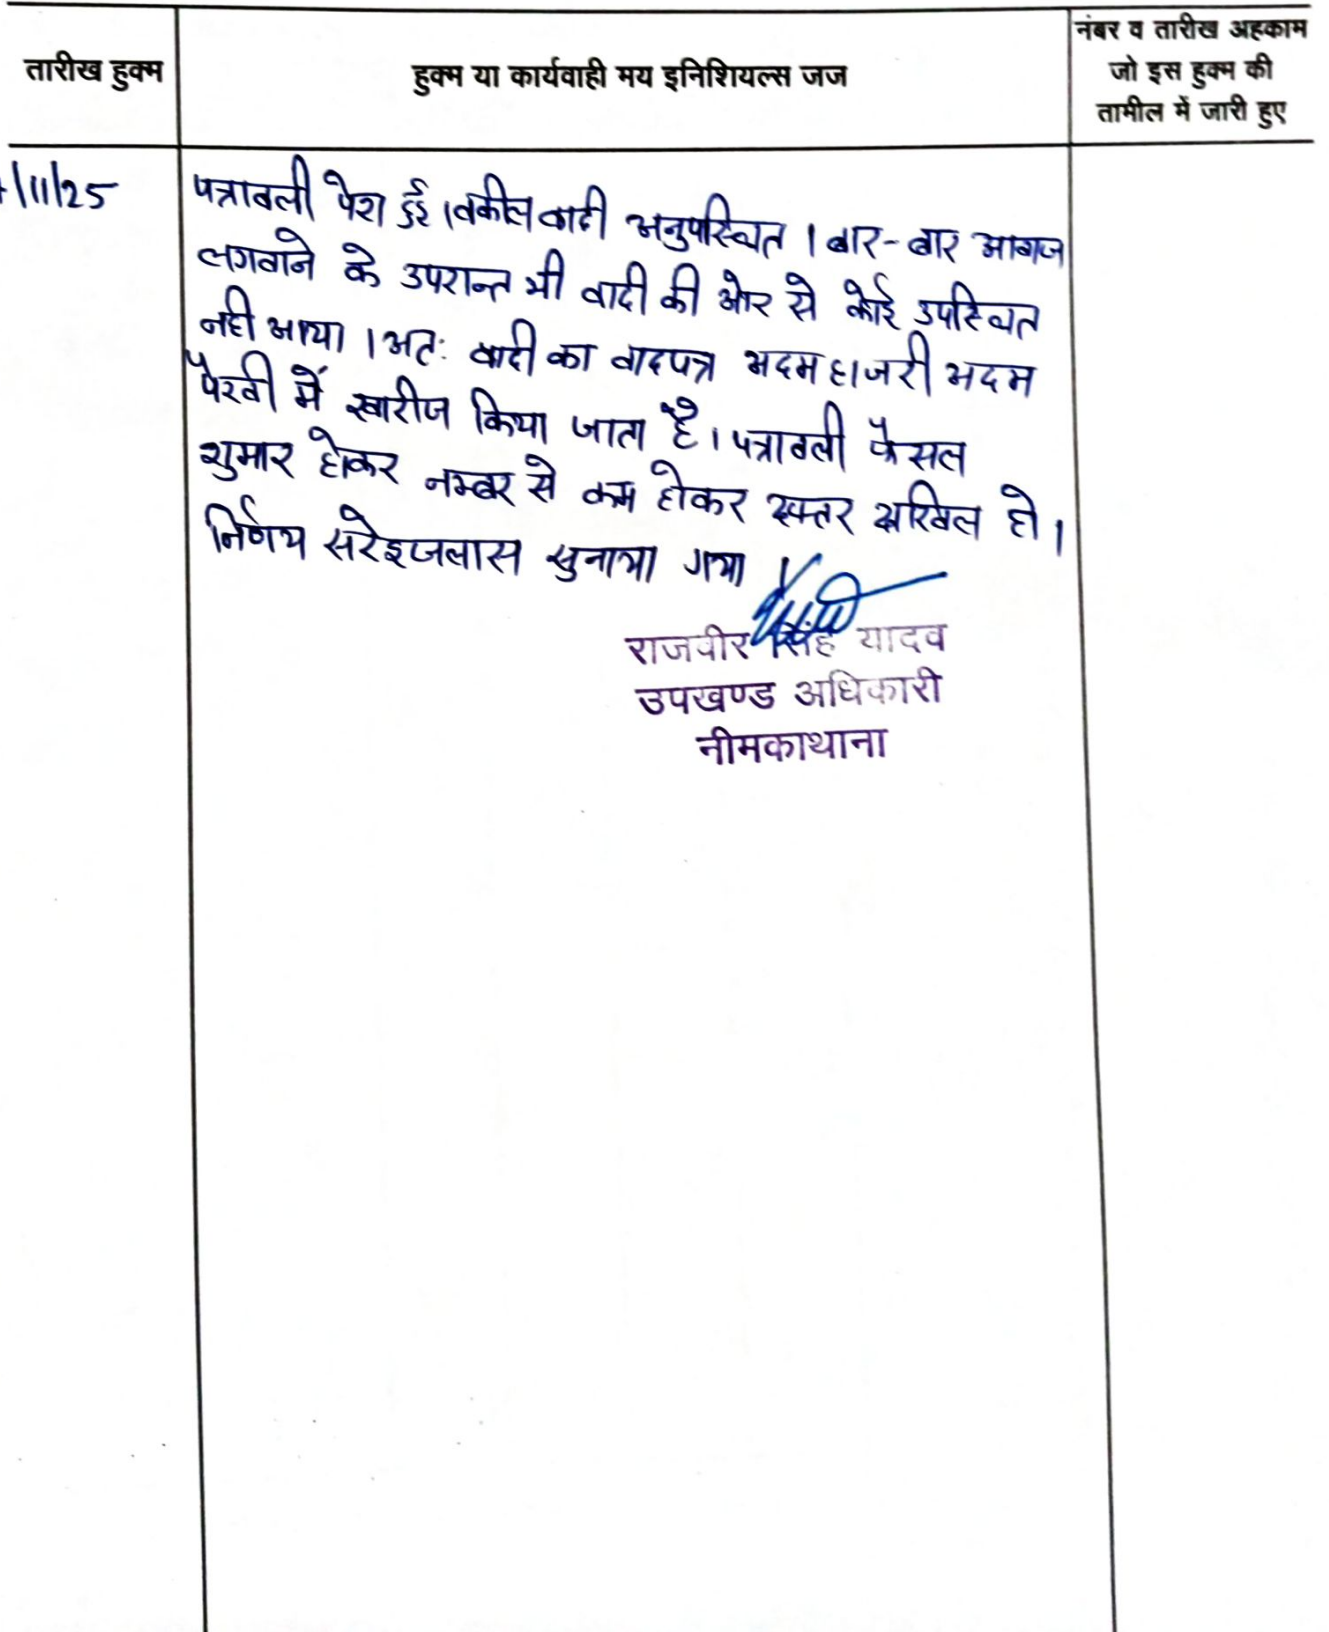 तारीख हुक्म
हुक्म या कार्यवाही मय इनिशियल्स जज
नंबर व तारीख अहकाम
जो इस हुक्म की
तामील में जारी हुए
/11/25
पत्रावली पेश हुई । वकील वादी अनुपस्थित । बार-बार आवाज
लगवाने के उपरान्त भी वादी की ओर से कोई उपस्थित
नही आया । अतः वादी का वादपत्र अदम हाजरी अदम
पैरवी में खारीज किया जाता है । पत्रावली फैसल
शुमार होकर नम्बर से कम होकर दफ्तर दाखिल हो ।
निर्णय सरेइजलास सुनाया गया ।
राजवीर सिंह यादव
उपखण्ड अधिकारी
नीमकाथाना